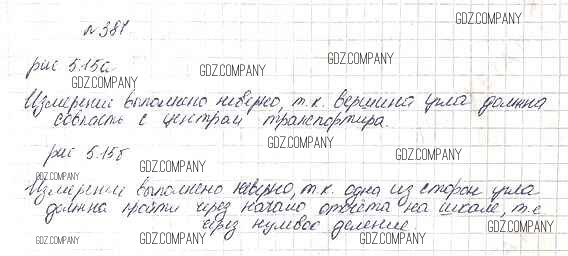 GDZ.COMPANY
№ 381.
GDZ.COMPANY
рис 5.15а
GDZ.COMPANY
GDZ.COMPANY
Измерение выполнено неверно, т.к. вершина угла должна
совпасть с центрам транспортира.
GDZ.COMPANY
рис 5.15б
GDZ.COMPANY
GDZ.COMPANY
GDZ.COMPANY
GDZ.COMPANY
Измерение выполнено неверно, т.к. одна из сторон угла
GDZ.COMPANY
GDZ.COMPANY
должна пройти через начало отсчёта на шкале, т.е
через нулевое деление.
GDZ.COMPANY
GDZ.COMPANY
GDZ.COMPANY
GDZ.COMPANY